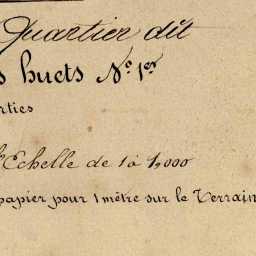 Quartier dit
s huets N.º 1.er
rties
l'Echelle de 1 à 1,000
papier pour 1 mètre sur le Terrain